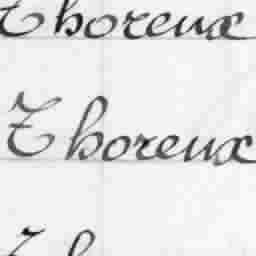 Thoreux
Thoreux